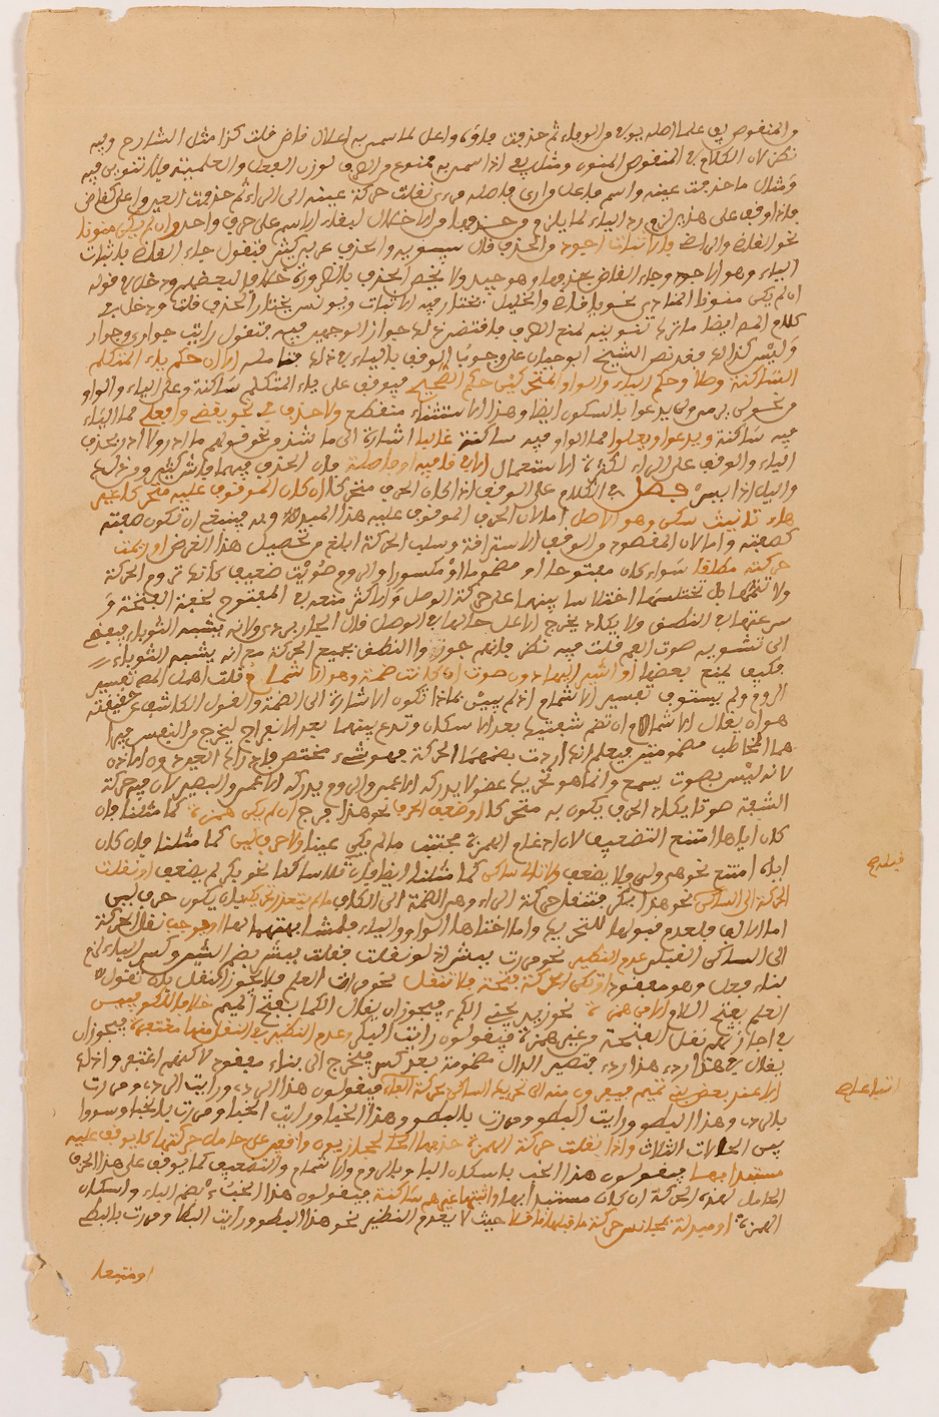 نكن لان الكلام في المنقوص المنون ومثل يفى اذا سمي به ممنوع من الصرف لوزن الفعل والعلمية فلا تنوين فيه
ومثال ما حذفت عينه واسم فاعل من ارى فاصله مرءى نقلت حركة عينه الى الراء ثم حذفت العين واعل كقاض
فاذا وقف على هذين لزم رد الياء لما يلزم من حذفها من الاخلال لبقاء الاسم على حرف واحد وان لم يكن منونا
نحو القاضى والراضى فالاثبات اجود من الحذف قال سيبويه والحذف عربي كثير فتقول جاء القاضى باثبات
الياء وهو الاجود وجاء القاض بحذفها وهو جيد ولا يختص الحذف بالضرورة خلافا لبعضهم ودخل في قوله
ان لم يكن منونا المنادى نحو يا قاضى والخليل يختار فيه الاثبات ويونس يختار الحذف قلت ودخل في
كلام المص ايضا ما ترك تنوينه لمنع الصرف فاقتضى ذلك جواز الوجهين فيه فتقول رايت جوارى وجوار
وليس كذلك فقد نص الشيخ ابو حيان على وجوب الوقف بالياء في ذلك ان حكم ياء المتكلم
الساكنة وصلا وحكم الياء والواو المتحركتين حكم الصحيح فيوقف على ياء المتكلم ساكنة وعلى الياء والواو
من نحو لن يرمى ولن يدعوا بالسكون ايضا وهذا الاستثناء منقطع ولا حذف في نحو يقضى وافعلى مما الياء
فيه ساكنة ويدعوا ويفعلوا مما الواو فيه ساكنة غالبا اشارة الى ما شذ من نحو قولهم ما ادر ولا ادر بحذف
الياء والوقف على الراء لكثرة الاستعمال الا في قافية او فاصلة فان الحذف فيهما جائز كثير ومن ذلك
والليل اذا يسر فصل في الكلام على الوقف اذا كان الحرف متحركا ان كان الموقوف عليه متحركا غير
هاء تانيث سكن وهو الاصل اما لان الحرف الموقوف عليه هذا المبدوء به فينبغي ان تكون صفته
كصفته واما لان المقصود من الوقف الاستراحة وسلب الحركة ابلغ في تحصيل هذا الغرض او رمت
حركته مطلقا سواء كان مفتوحا او مضموما او مكسورا والروم صويت ضعيف كانك تروم الحركة
ولا تتمها بل تختلسها اختلاسا تنبيها على حركة الوصل والاكثر منعه في المفتوح لخفة الفتحة و
سرعتها في النطق ولا يكاد يخرج الا على حالها في الوصل
الى تشويه صوت الفم قلت فيه نظر فانهم جوزوا النطق بجميع الحركة مع انه يشبه الثوباء
فكيف يمنع بعضها او اشير اليها دون صوت ان كانت ضمة وهو الاشمام قلت اهمل المص تفسير
الروم ولم يستوف تفسير الاشمام اذ لم يبين بماذا تكون الاشارة الى الضمة والقول الكاشف عن حقيقته
هو ان يقال الاشمام ان تضم شفتيك بعد الاسكان وتدع بينهما بعد الانفراج ليخرج منه النفس فيراهما
المخاطب مضمومتين فيعلم انك اردت بضمهما الحركة فهو شىء مختص بادراك العين دون الاذن
لانه ليس بصوت يسمع وانما هو تحريك عضو فلا يدركه الاعمى والروم يدركه الاعمى والبصير لان فيه حركة
الشفة صوتا يكاد الحرف يكون به متحركا او ضعف الحرف نحو هذا فرج ان لم يكن همزة كما مثلنا فان
كان اياها امتنع التضعيف لان ادغام الهمزة مجتنب ما لم يكن عينا ولا حرف لين كما مثلنا فان كان
اياه امتنع نحو هى ولن فلا يضعف ولا تالى ساكن كما مثلنا ايضا فان تلا ساكنا نحو بكر لم يضعف او نقلت
الحركة الى الساكن نحو هذا بكر فتنقل حركة الراء وهى الضمة الى الكاف ما لم يتعذر تحريكه بان يكون حرف لين
اما الالف فلعدم قبولها للتحريك واما اختاها الواو والياء فلمشابهتهما لها او يوجب نقل الحركة
الى الساكن القبلى عدم النظير نحو مررت ببشر اذ لو نقلت فقلت
بناء فعل وهو مفقود او تكن الحركة فتحة فلا تنقل نحو مرات العلم فلا يجوز النقل بان تقول
العلم بفتح اللام الا من همزة نحو فيجوز ان يقال الكما بفتح الميم خلافا للكوفيين
في اجازتهم نقل الفتحة من غير همزة فيقولون رايت البكر وعدم النظير في النقل منها مغتفر فيجوز ان
يقال في هذا ردء هذا ردء فتصير الدال مضمومة بعد كسر فيخرج الى بناء مفقود لاكنهم اغتفروا ذلك
الا عند بعض بنى تميم فيفرون منه الى تحريك الساكن بحركة الفاء فيقولون هذا الردء ورايت الردء ومررت
بالردء وهذا البطو ورايت البطو ومررت بالبطو وهذا الخبا ورايت الخبا ومررت بالخبا وسووا
بين الحالات الثلاث واذا نقلت حركة الهمزة حذفها الحجازيون واقفين على حامل حركتها كما يوقف عليه
مستبدا بها فيقولون هذا الخب باسكان الباء وبالروم والاشمام والتضعيف كما يوقف على هذا الحرف
الحامل لهذه الحركة ان كان مستبدا بها واثبتها غيرهم ساكنة فيقولون هذا الخبء بضم الباء واسكان
الهمزة او مبدلة بمجانس حركة ما قبلها ناقلا حيث لا يعدم النظير نحو هذا البطو ورايت البطا ومررت بالبطى
او متبعا
اتباعا